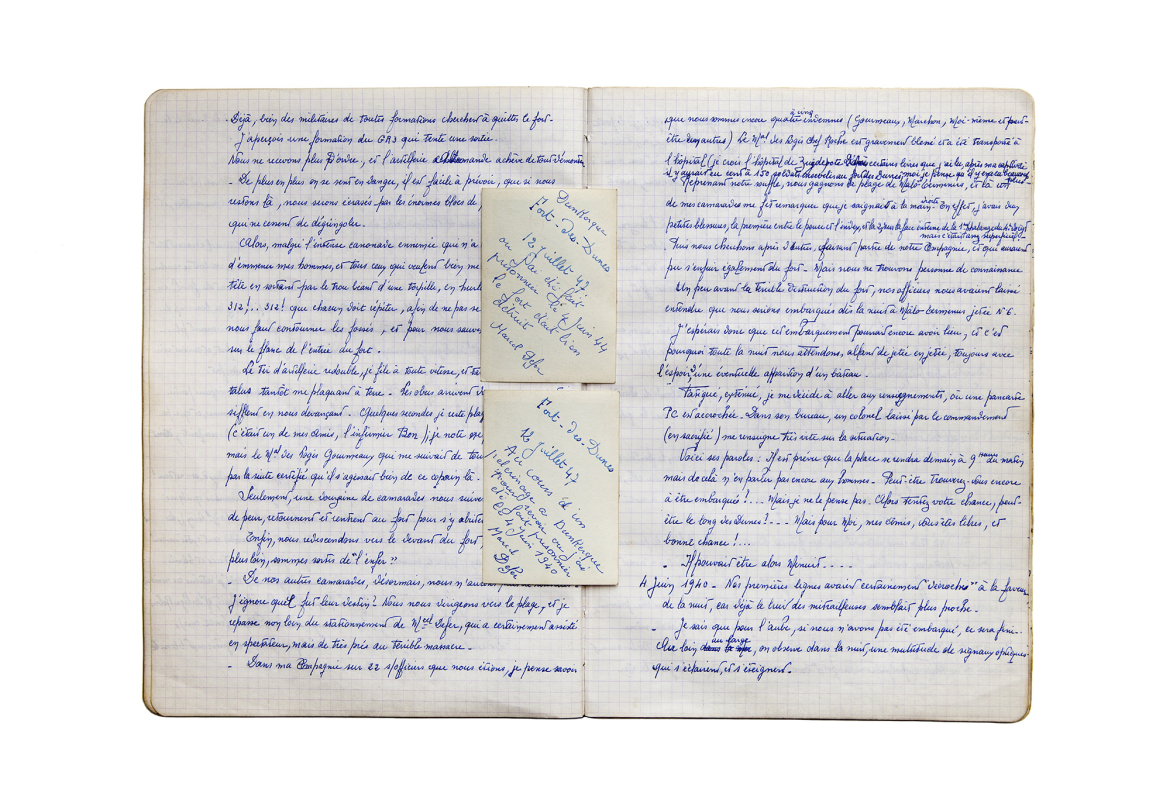 - Déjà, bien des militaires de toutes formations cherchent à quitter le fort-
J'aperçois une formation du GR3 qui tente une sortie.
Nous ne recevons plus d'ordre, et l'artillerie allemande achève de tout démonter
- De plus en plus on se sent en danger, il est facile à prévoir, que si nous
restons là, nous serons écrasés par les énormes blocs de
qui ne cessent de dégringoler.
Alors, malgré l'intense canonade ennemie que n'a
d'emmener mes hommes, et tous ceux qui veulent bien me
tête en sortant par le trou béant d'une torpille, en hurla
312!.. 312! que chacun doit répéter, afin de ne pas se
nous faut contourner les fossés, et pour nous sauver
sur le flanc de l'entrée du fort.
Le tir d'artillerie redouble, je file à toute vitesse, et tan
talus tantôt me plaquant à terre. Les obus arrivent
sifflent en nous devançant. Quelques secondes je reste pla
(c'était un de mes amis, l'infirmier Bon), je note
mais le Mal des Logis Gourmeaux qui me suivait de
par la suite certifié qu'il s'agissait bien de ce copain là.
Seulement, une dizaine de camarades nous suivent
de peur, retournent et rentrent au fort pour s'y abriter
Enfin, nous redescendons vers le devant du fort,
plus loin, sommes sortis de "l'enfer"
- De nos autres camarades, désormais, nous n'au
J'ignore quel fut leur destin? Nous nous dirigeons vers la plage, et je
repasse non loin, du stationnement de Mcel Defer, qui a certainement assisté
en spectateur, mais de très près au terrible massacre.
- Dans ma Compagnie sur 22 s/officiers que nous étions, je pense savoir
Dunkerque
Fort-des-Dunes
12 Juillet 47
ou j'ai été fait
prisonnier le 4 Juin 44
le fort était bien
détruit
Marcel Defer
Fort-des-Dunes
12 Juillet 47
Au cours d'un
pèlerinage à Dunkerque
pour revoir ou j'ai
été fait prisonnier
le 4 Juin 1940
Marcel
Defer
à cinq
que nous sommes encore quatre indemnes (Gourmeaux, Marchon, Moi-même et peut-
être deux autres) Le Mal des Logis Chef Roche est gravement blessé et a été transporté à
l'hôpital (je crois l'hôpital de Zuydcoote certains livres que j'ai lu, après ma captivité
il y aurait eu cent à 150 soldats ensevelis au fort des Dunes, moi je pense qu'il y en a beaucoup
plus-
Reprenant notre souffle, nous gagnons la plage de Malo-Terminus, et là un
droite
de mes camarades me fait remarquer que je saignais à la main. En effet, j'avais deux
petites blessures, la première entre le pouce et l'index, et la 2e sur la face externe de la 1e Phalange du 4e doigt
mais c'était assez superficiel.
Puis nous cherchons après d'autres, faisant partie de notre Compagnie, et qui auraient
pu s'enfuir également du fort- Mais nous ne trouvons personne de connaissance
Un peu avant la terrible destruction du fort, nos officiers nous avaient laissé
entendre que nous serions embarqués dès la nuit à Malo-Terminus jetée N°6.
J'espérais donc que cet embarquement pourrait encore avoir lieu, et c'est
pourquoi toute la nuit nous attendons, allant de jetée en jetée, toujours avec
l'espoir, d'une éventuelle apparition d'un bateau.
Fatigué, exténué, je me décide à aller aux renseignements, où une pancarte
PC est accrochée. Dans son bureau, un colonel laissé par le commandement
(en sacrifié) me renseigne très vite sur la situation-
Voici ses paroles: Il est prévu que la place se rendra demain à 9 heures du matin
mais de celà n'en parlez pas encore aux hommes. Peut-être trouverez-vous encore
à être embarqué!... Mais je ne le pense pas. Alors tentez votre chance, peut-
être le long des Dunes!--- Mais pour Moi, mes amis, vous êtes libres, et
bonne chance!...
- Il pouvait être alors Minuit....
4 Juin 1940- Nos premières lignes avaient certainement "décroché" à la faveur
de la nuit, car déjà le tir des mitrailleuses semblait plus proche.
- Je sais que pour l'aube, si nous n'avons pas été embarqué, ce sera fini-
au large
Au loin, on observe dans la nuit, une multitude de signaux optiques
qui s'éclairent, et s'éteignent.